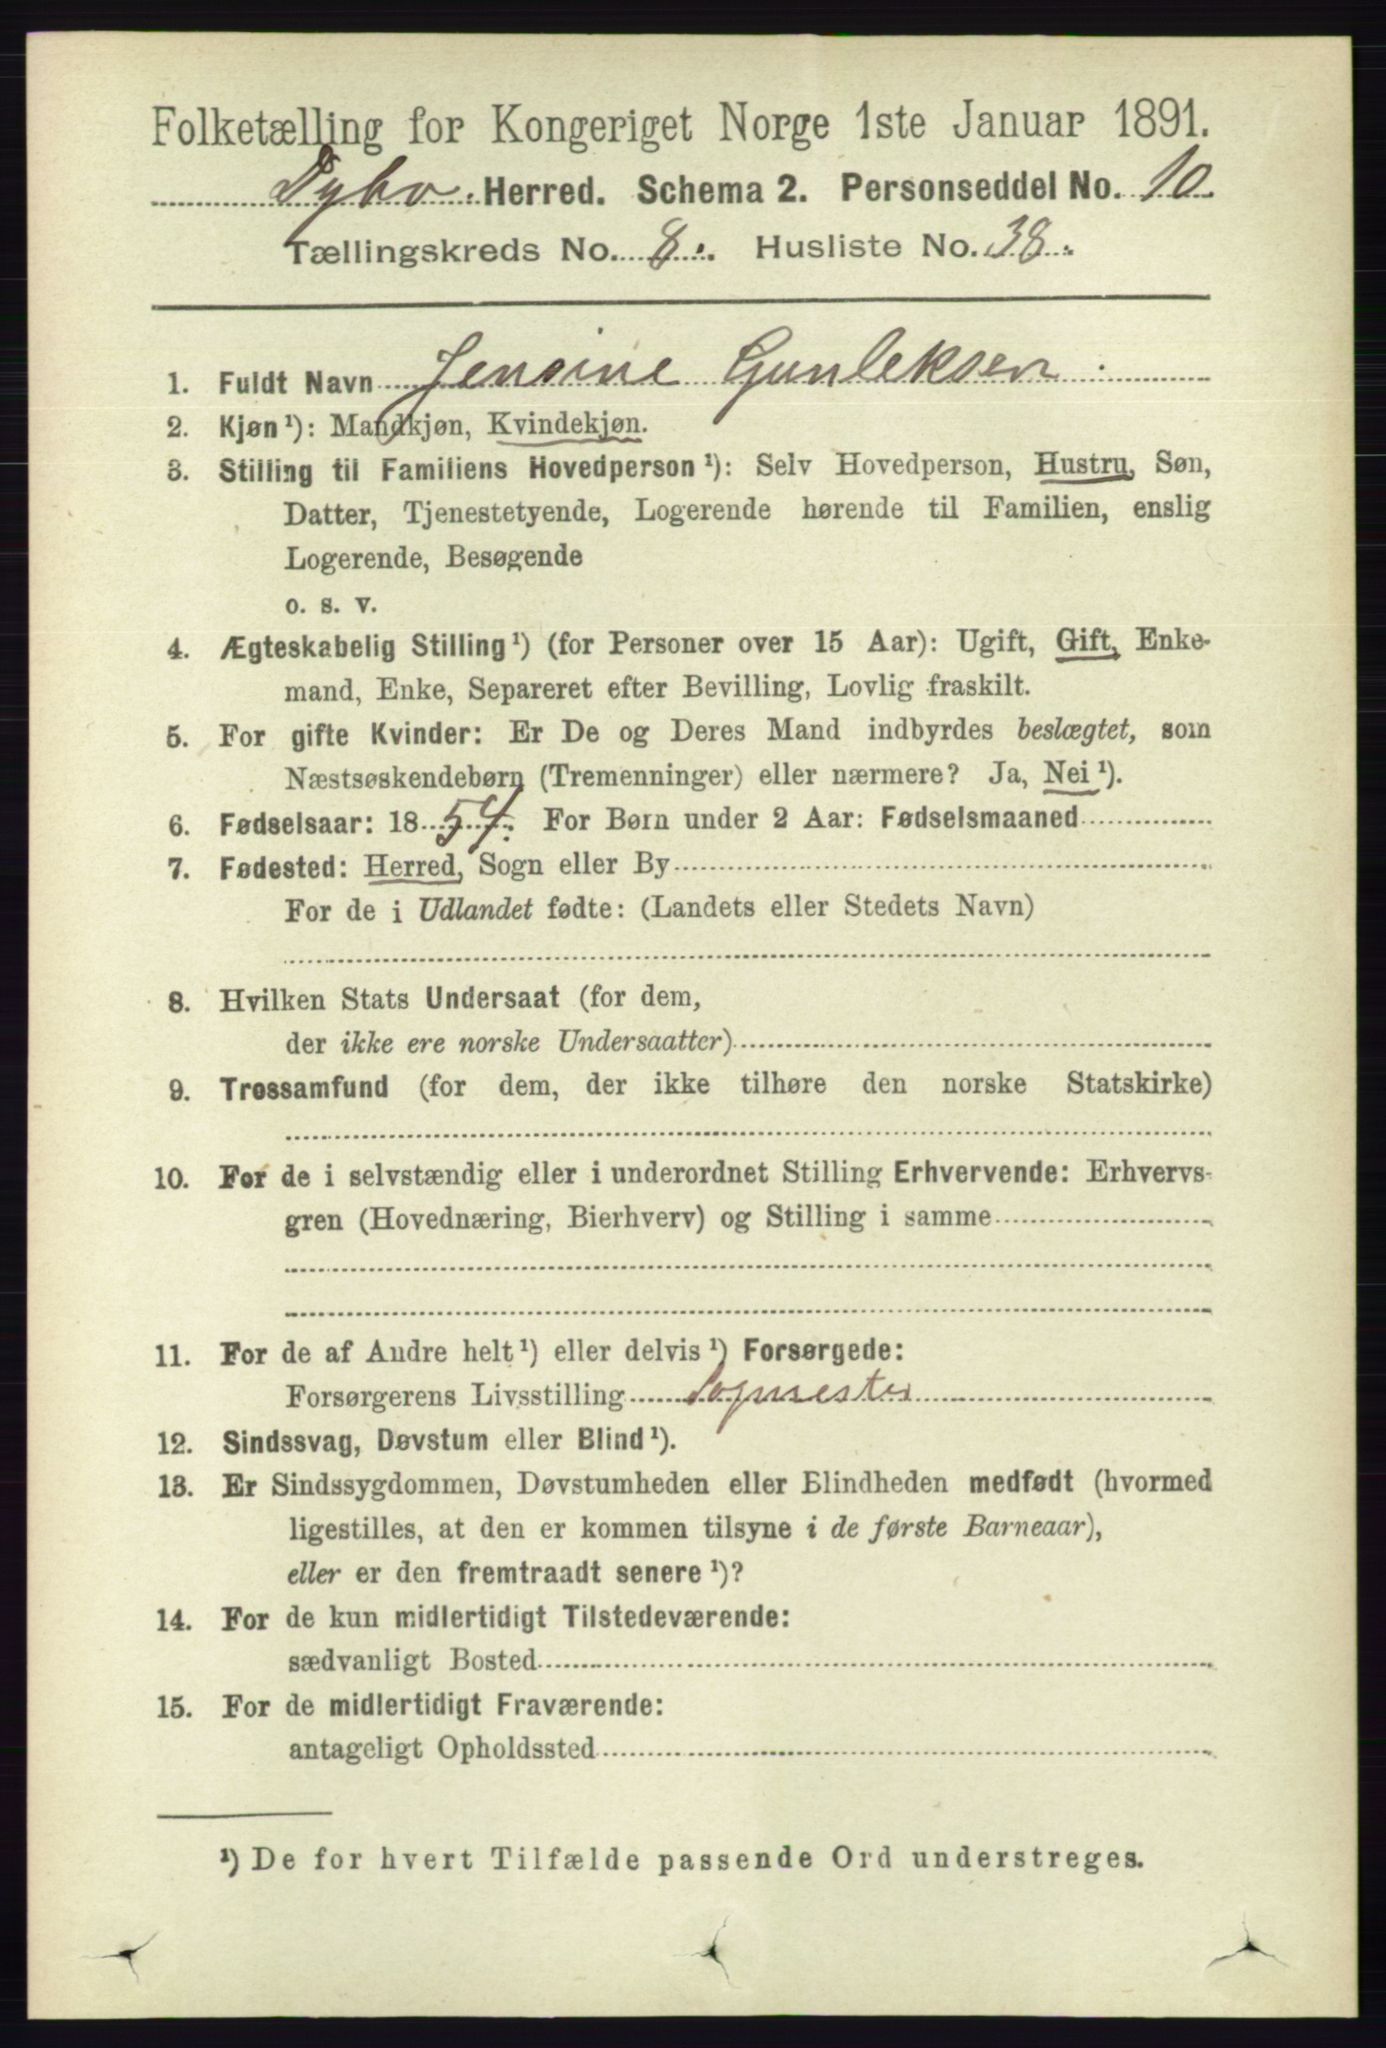 Folketælling for Kongeriget Norge 1ste Januar 1891.
Dybo. Herred. Schema 2. Personseddel No. 10
Tællingskreds No. 8. Husliste No. 38.
1. Fuldt Navn Jensine Gunleksen.
2. Kjøn ¹): Mandkjøn, Kvindekjøn.
3. Stilling til Familiens Hovedperson ¹): Selv Hovedperson, Hustru, Søn,
Datter, Tjenestetyende, Logerende hørende til Familien, enslig
Logerende, Besøgende
o. s. v.
4. Ægteskabelig Stilling ¹) (for Personer over 15 Aar): Ugift, Gift, Enke-
mand, Enke, Separeret efter Bevilling, Lovlig fraskilt.
5. For gifte Kvinder: Er De og Deres Mand indbyrdes beslægtet, som
Næstsøskendebørn (Tremenninger) eller nærmere? Ja, Nei ¹).
6. Fødselsaar: 1854. For Børn under 2 Aar: Fødselsmaaned
7. Fødested: Herred, Sogn eller By
For de i Udlandet fødte: (Landets eller Stedets Navn)
8. Hvilken Stats Undersaat (for dem,
der ikke ere norske Undersaatter)
9. Trossamfund (for dem, der ikke tilhøre den norske Statskirke)
10. For de i selvstændig eller i underordnet Stilling Erhvervende: Erhvervs-
gren (Hovednæring, Bierhverv) og Stilling i samme
11. For de af Andre helt ¹) eller delvis ¹) Forsørgede:
Forsørgerens Livsstilling Sagmester
12. Sindssvag, Døvstum eller Blind ¹).
13. Er Sindssygdommen, Døvstumheden eller Blindheden medfødt (hvormed
ligestilles, at den er kommen tilsyne i de første Barneaar),
eller er den fremtraadt senere ¹)?
14. For de kun midlertidigt Tilstedeværende:
sædvanligt Bosted
15. For de midlertidigt Fraværende:
antageligt Opholdssted
¹) De for hvert Tilfælde passende Ord understreges.